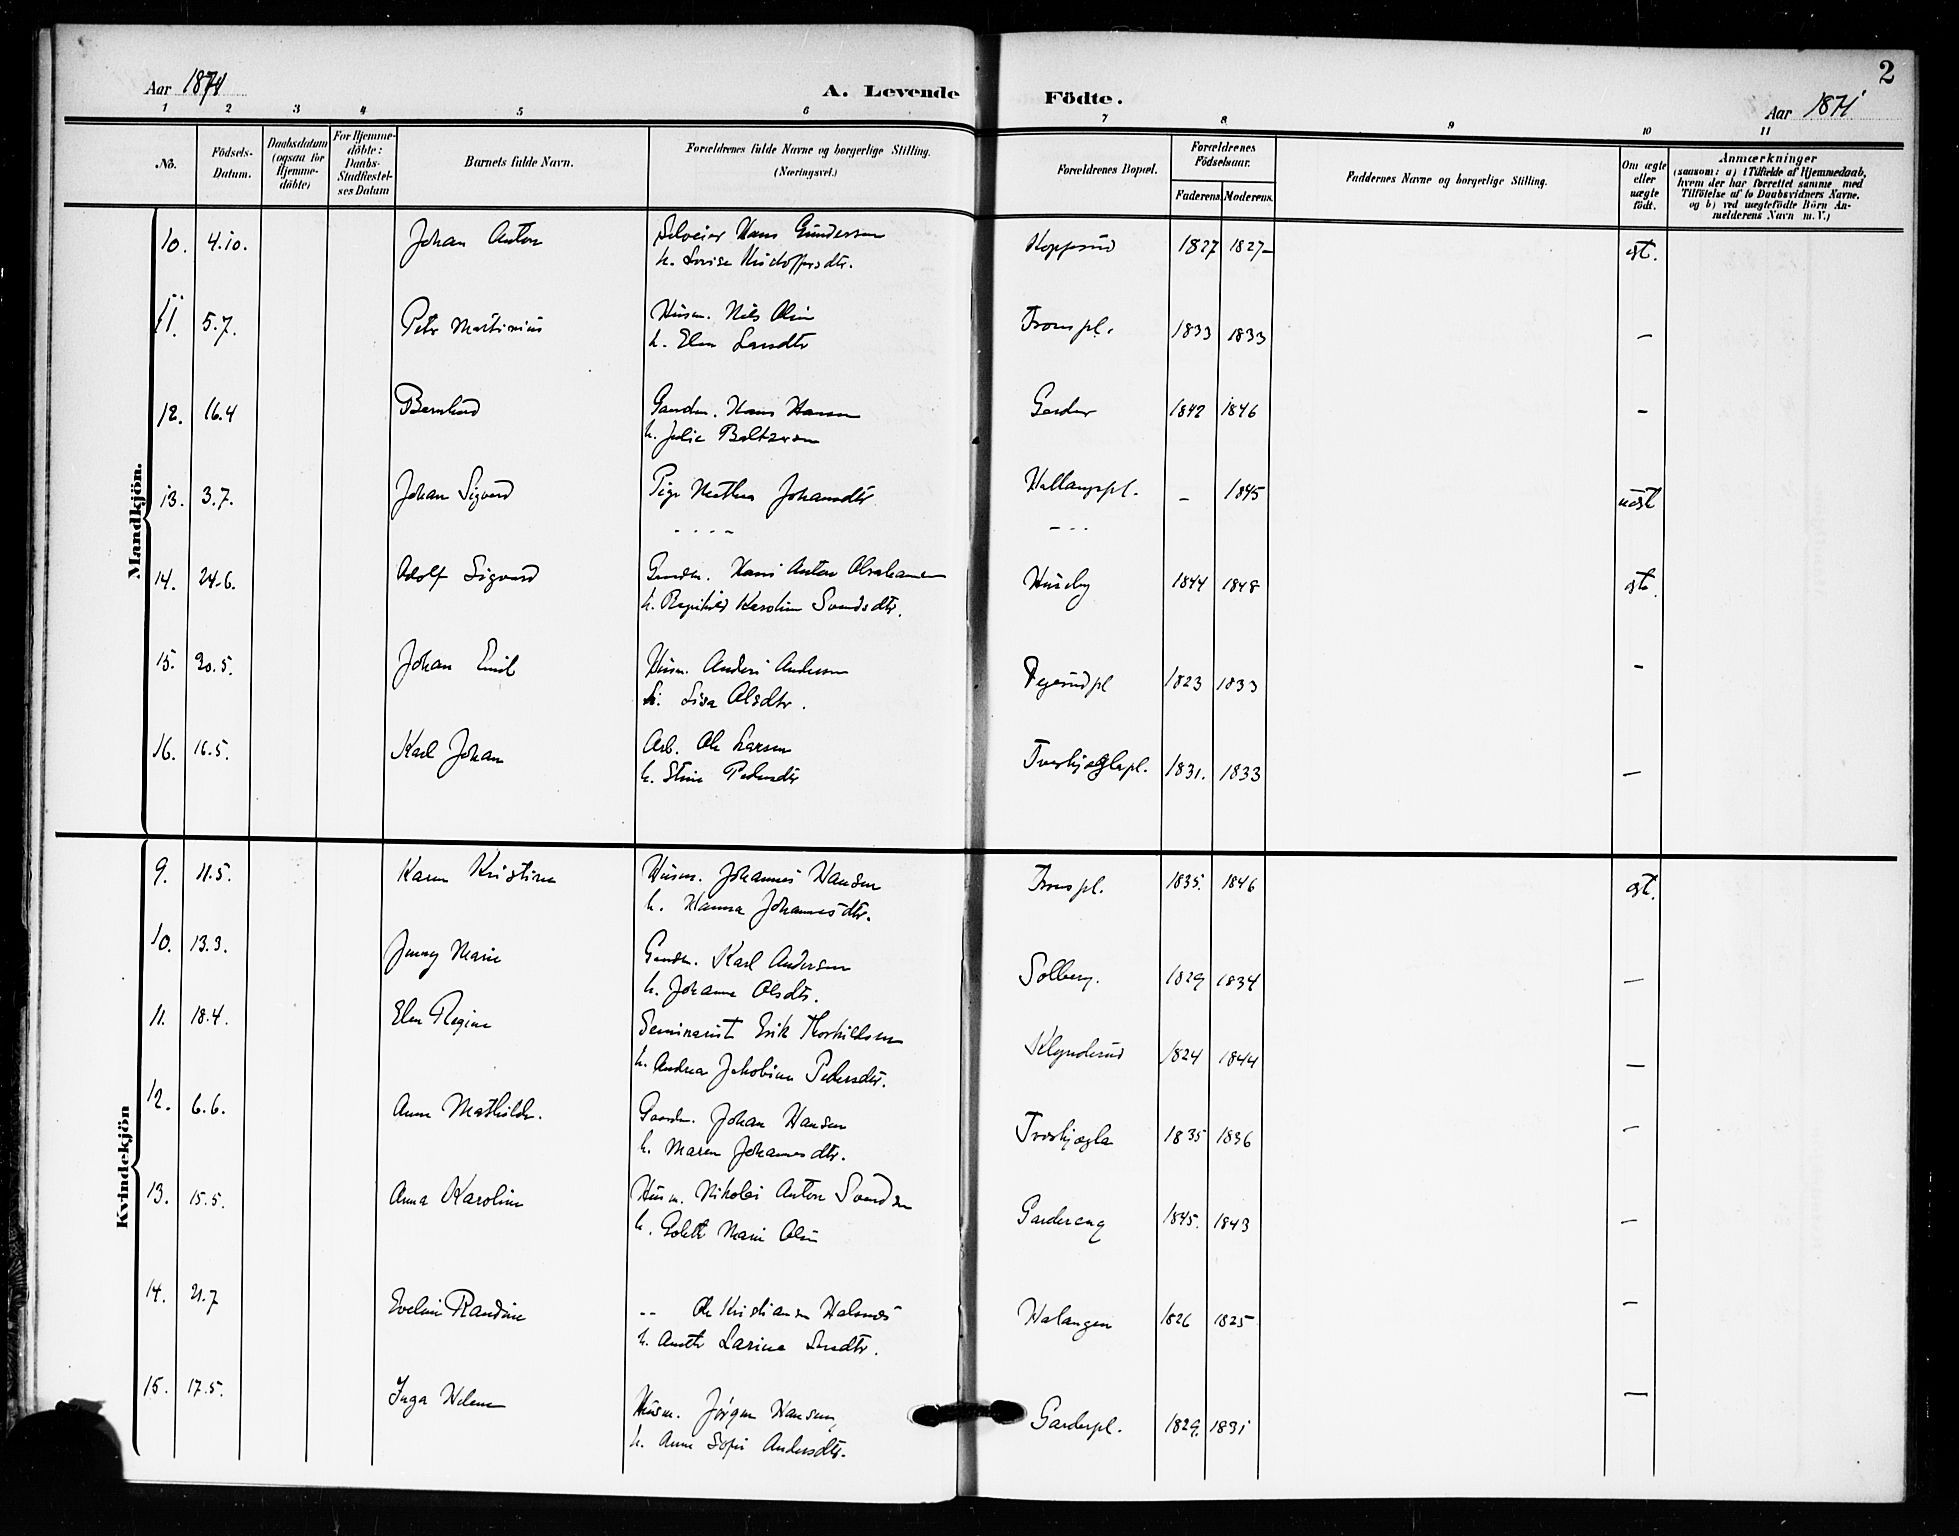 2
Aar 1871
A. Levende Födte.
Aar 1871
1 2 3 4 5 6 7 8 9 10 11
No. Födsels-Datum. Daabsdatum (ogsaa for Hjemme-döbte) For Hjemme-döbte: Daabs-Stadfæstel-ses Datum Barnets fulde Navn. Forældrenes fulde Navne og borgerlige Stilling. (Næringsvei.) Forældrenes Bopæl. Forældrenes Födselsaar. Faderens. Moderens. Faddernes Navne og borgerlige Stilling. Om ægte eller uægte födt. Anmærkninger (saasom: a) i Tilfælde af Hjemmedaab, hvem der har forrettet samme med Tilföielse af to Daabsvidners Navne. og b) ved uægtefödte Börn An-melderens Navn m. V.)
Mandkjön.
10. 4.10. Johan Anton Selveier Hans Gundersen Koppsrud 1827 1827 ægt.
h. Lovise Kristoffersdtr.
11. 5.7. Petr Martinius Husm. Nils Olsen Tronspl. 1833 1833 —
h. Elen Larsdtr
12. 16.4 Bernhard Gaardm. Hans Hansen Garder 1842 1846 —
h. Julie Baltzersen
13. 3.7. Johan Sigvard Pige Mathea Johansdtr Hallangspl. — 1845 uægt
- - - - - - -
14. 24.6. Adolf Sigvard Gaardm. Hans Anton Abrahamsen Huseby 1844 1848 ægt.
h. Ragnhild Karoline Svendsdtr.
15. 20.5. Johan Emil Husm. Anders Andersen 1823 1833 —
h. Lisa Olsdtr.
16. 16.5. Karl Johan Arb. Ole Larsen Tverkjæglapl. 1831. 1833 —
h. Stine Pedersdtr
Kvindekjön
9. 11.5. Karen Kristine Husm. Johannes Hansen Tronspl. 1835. 1846 ægt.
h. Hanna Johannesdtr.
10. 13.3. Jenny Marie Gaardm. Karl Andersen Solberg. 1829 1834 —
h. Johanne Olsdtr.
11. 18.4. Elen Regine Seminarist Erik Thorkildsen Klynderud 1824 1844 —
h. Andrea Jakobine Pedersdtr.
12. 6.6. Anne Mathilde. Gaardm. Johan Hansen Tverkjægla 1835 1836 —
h. Maren Johannesdtr.
13. 15.5. Anna Karoline Husm. Nikolai Anton Svendsen Gardereng 1845. 1843 —
h. Golette Marie Olsen
14. 21.7 Eveline Randine -- Ole Kristiansen Halsnes Halangen 1826 1825 —
h. Anette Larine
15. 17.5. Inga Helene Husm. Jørgen Hansen, Garderpl. 1829. 1831 —
h. Anne Sofie Andersdtr.